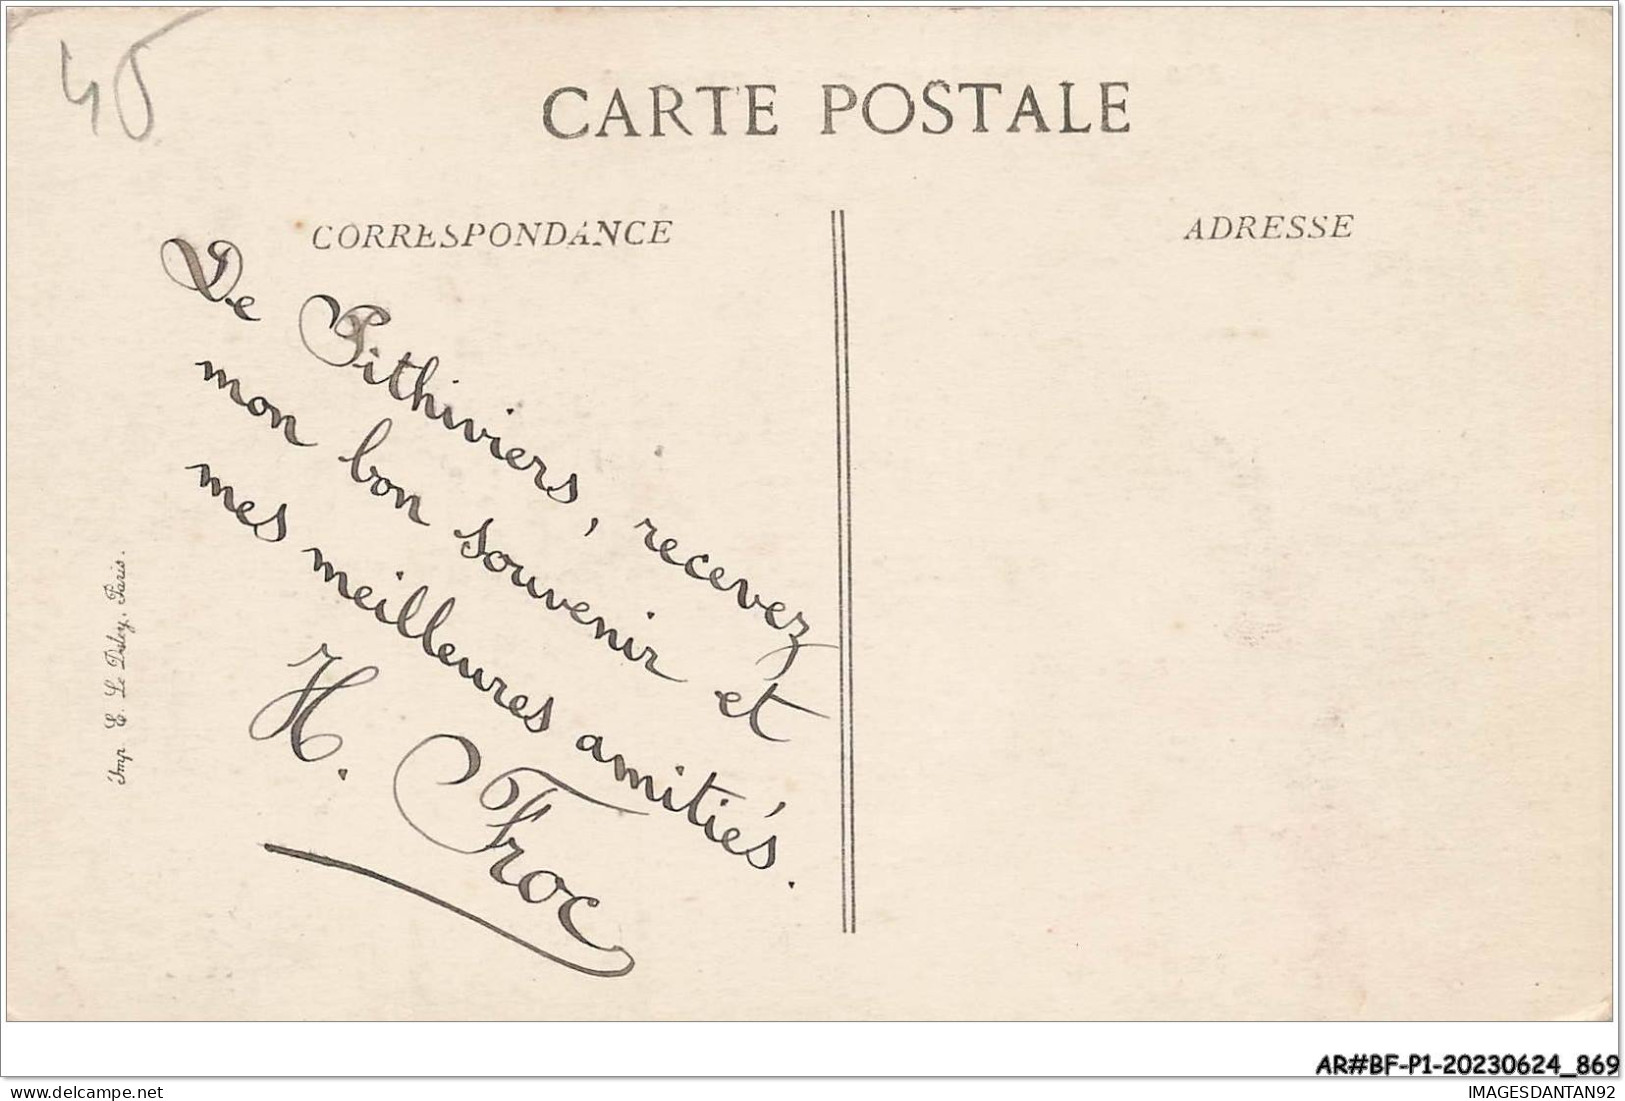 45
CARTE POSTALE
CORRESPONDANCE
ADRESSE
De Pithiviers, recevez
mon bon souvenir et
mes meilleures amitiés.
H. Froc
Imp. E. Le Deley, Paris.
AR#BF-P1-20230624_869
www.delcampe.net
IMAGESDANTAN92